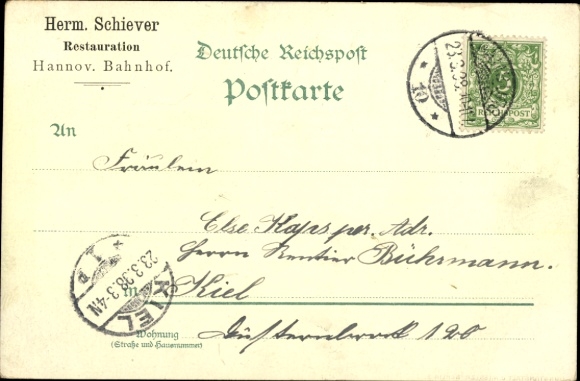 Herm. Schiever
Restauration
Hannov. Bahnhof.
Deutsche Reichspost
Postkarte
REICHSPOST
* 10 *
23.3.98
An
Fräulein
Else Kaps per. Adr.
Herrn Rentier Bührmann.
in Kiel
Düsternbrook 120
Wohnung
(Straße und Hausnummer)
KIEL
23.3.98.3-4N
* 1 d